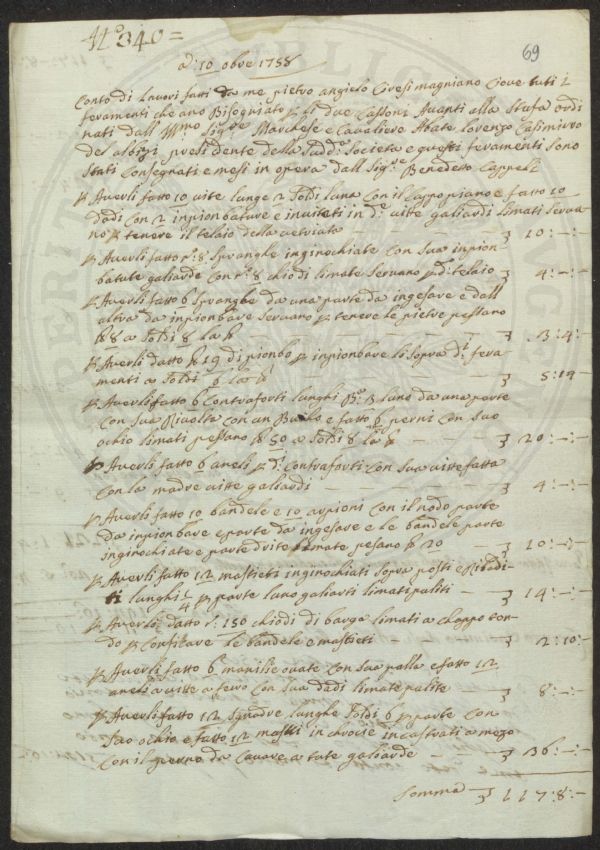 N.° 340 =
69
a di 10 obre 1758
Conto di Lavori fatti da me pietro angielo Ciresi magniano Cioue tuti i
feramenti che ano Bisogniato p li due Cassoni Avanti alla Stufa ordi
nati dall Illmo Sig.re Marchese e Cavaliere Abate Lorenzo Casimirro
del albizi presidente della Sudd.a Societa e questi feramenti sono
Stati Consegnati e mesi in opera dall Sig.re Benedetto Cappeli
p Averli fatto 10 vite lunge 2 Soldi luna Con il Cappo piano e fatto 10
dadi Con 2 inpionbature e invitati in d.e vite galiardi Limati Servа
no p tenere il telaio della vetriata — 10:—:—
p Averli fatto n.° 8 Spranghe inginochiate Con Sua inpion
batute galiarde Con n.° 8 chiodi limate Servano p d.o telaio 4:—:—
p Averli fatto 6 Spranghe da una parte da ingesare e dall
altra da inpionbare Servano p tenere le pietre pessano
lb 8 a Soldi 8 la lb — 3:4:—
p Averli datto lb 19 di pionbo p inpionbare li Sopra d.i fera
menti a Soldi 6 la lb — 5:14
p Averli fatto 6 Contraforti lunghi B.a luno da una parte
Con Sua Rivolta Con un Buco e fatto 6 perni Con Suo
ochio limati pessano lb 50 a Soldi 8 la lb — 20:—:—
p Averli fatto 6 aneli p d.i Contraforti Con Sua vite fatta
Con la madre vite galiardi — 4:—:—
p Averli fatto 10 bandele e 10 arpioni Con il nodo parte
da inpionbare e parte da ingesare e le bandele parte
inginochiate e parte drite limate pesano lb 20 — 10:—:—
p Averli fatto 12 mastieti inginochiati Sopra posti e Ribadi
ti lunghi 1/4 p parte luno galiarti limati puliti — 14:—:—
p Averli datto n.° 150 chiodi di barga limati a chappo ton
do p Conficare le bandele e mastieti — 2:10:—
p Averli fatto 6 manilie ovate Con Sua palla e fatto 12
aneli a vite a fero Con Sua dadi limate pulite — 8:—:—
p Averli fatto 12 Squadre lunghe Soldi 6 p parte Con
Suo ochio e fatto 12 mastri in chrocie incastrati a mezo
Con il perno da Cavare a tute galiarde — 36:—:—
Somma 117:8:—